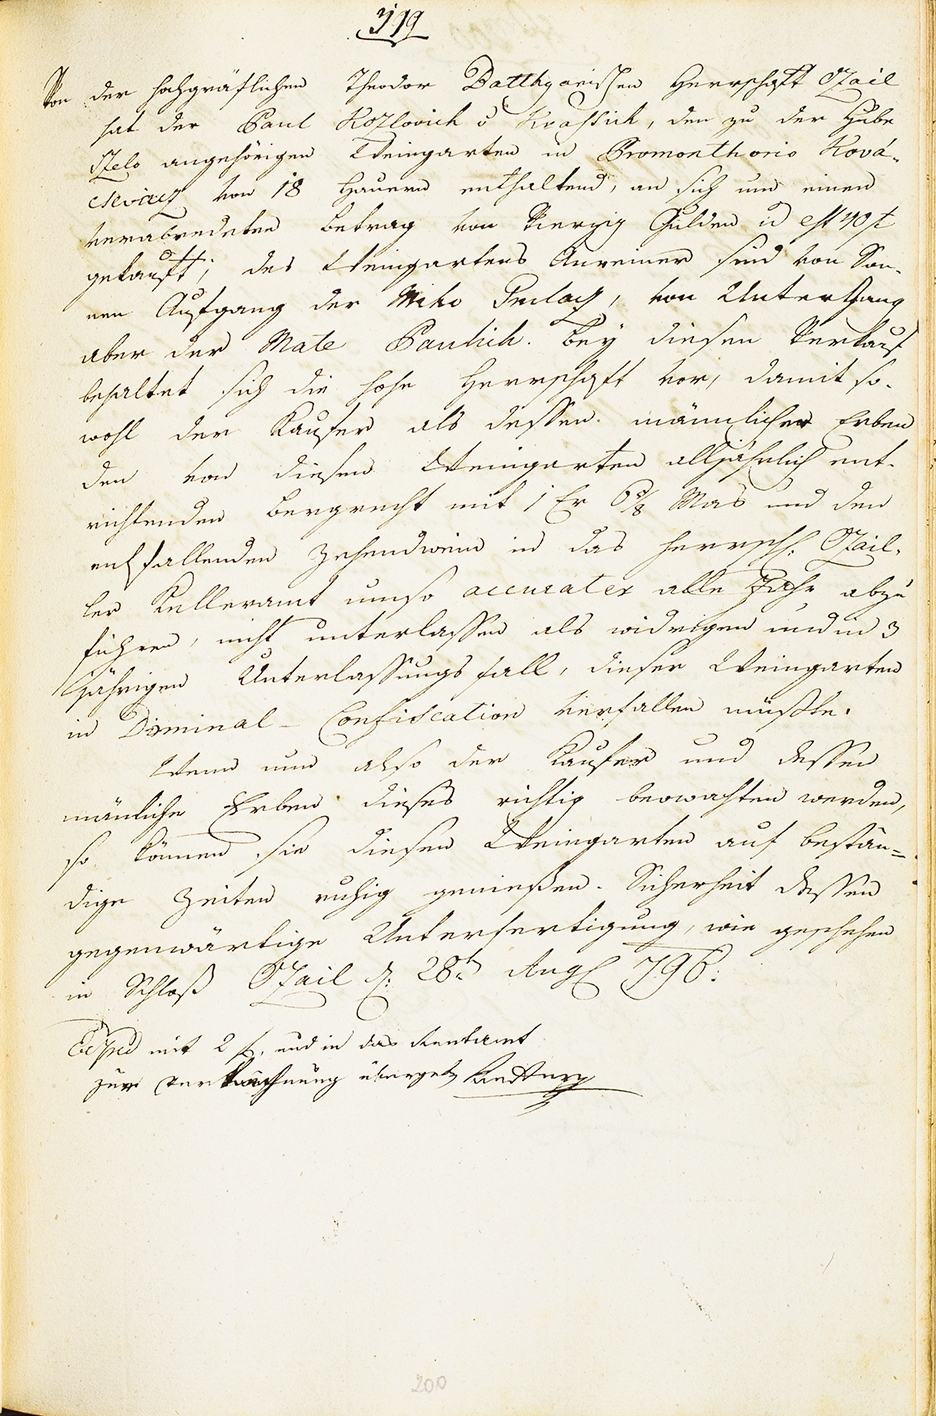 319
Von der hochgräflichen Theodor Batthyanischen Herrschaft Ozail
hat der Paul Kozlovich v Krassich, den zu der Hube
Szelo angehörigen Weingarten in Promonthorio Ková-
csevacz von 18 Hauern enthaltend, an sich um einen
verabredeten Betrag von Vierzig Gulden id est 40 f
gekauft; des Weingartens Anreiner sind von Son-
nen Aufgang der Miko, von Untergang
aber der Mate Paulich. Bey diesen Verkauf
behaltet sich die hohe Herrschaft vor, damit so-
wohl der Kaufer als dessen männlicher Erben
den von diesen Weingarten alljährlich ent-
richtenden Bergrecht mit 1 Er 6 7/8 Mas und den
entfallenden Zehendwein in das herrschl. Ozail-
ler Kelleramt umso accurater alle Jahr abzu
führen, nicht unterlassen als widrigen und in 3
jährigen Unterlassungsfall, dieser Weingarten
in Dominal-Confiscation verfallen müßte.
Wenn nun also der Kaufer und dessen
mänliche Erben dieses richtig beowachten werden,
so können sie diesen Weingarten auf bestän=
dige Zeiten ruhig genießen. Sicherheit dessen
gegenwärtige Unterfertigung, wie geschehen
in Schloß Ozail d: 28t Augs 796.
Exped mit 2 f, und in das Rentamt
zur Verrechnung übergeb
200